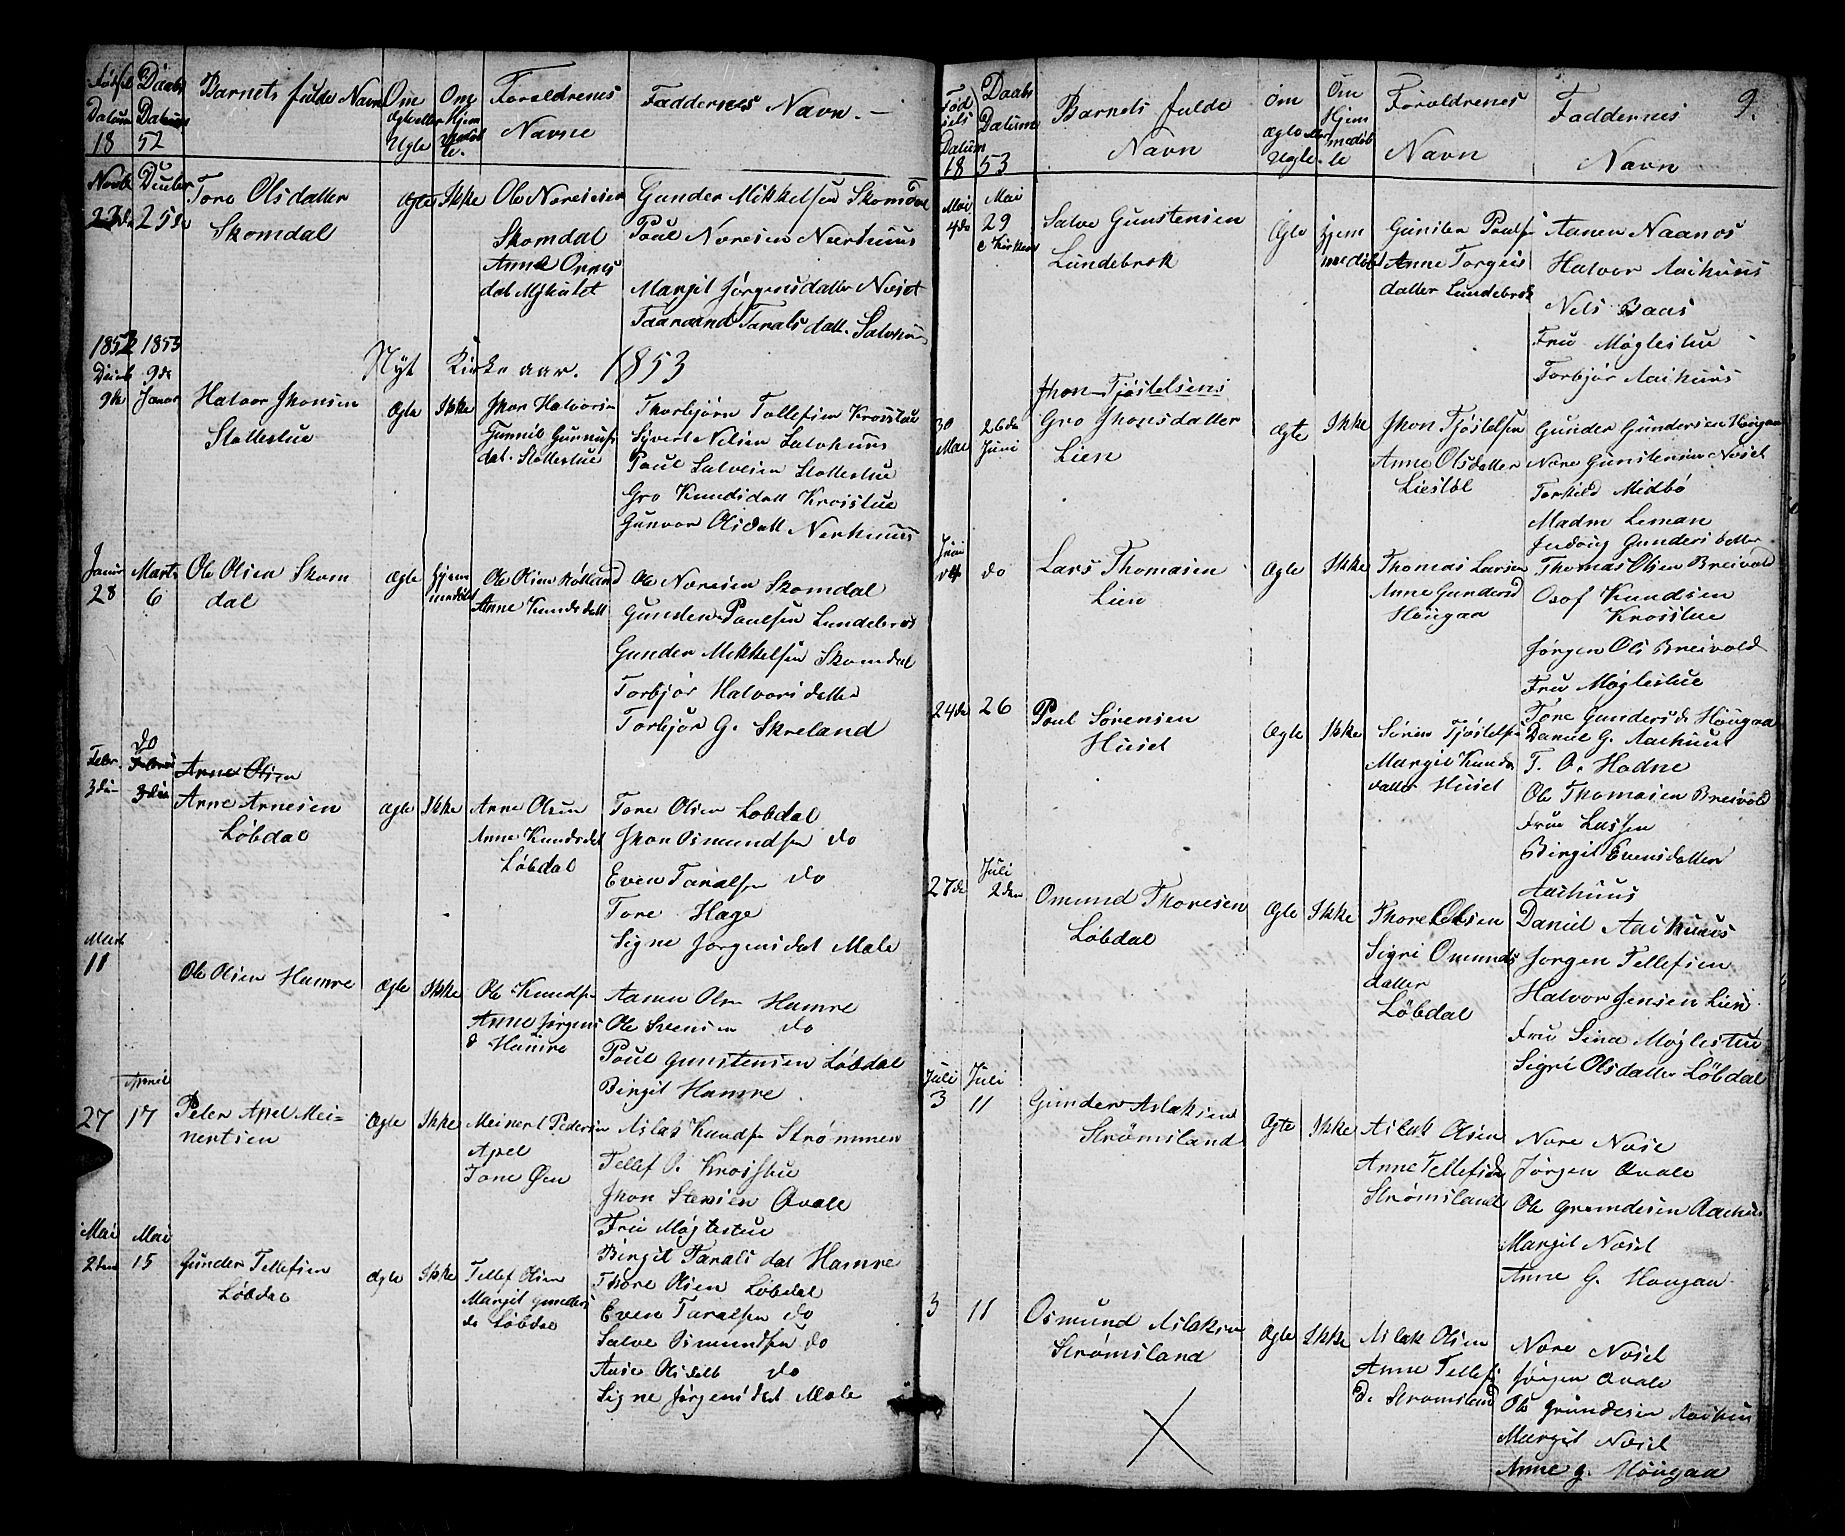 Fødsels Datum 18
Daabs Datum 52
Barnets fulde Navn
Om Ægte eller Uægte
Om Hjemmedøbte.
Foræld­renes Navne
Faddernes Navn. –
Novb. 23de
Decber 25de
Tore Olsdatter
Skomdal
Ægte
Ikke
Ole Noresen
Skomdal
Anne Onnes
dat Mykulet
Gunder Mikkelsen Skomdal
Poul Noresen Nerhuus
Margit Jørgensdatter Neset
Taarand Taralsdatt. Salvhuus
1852 1853
Nyt Kirke aar. 1853
Decmb 9de
9de Januar
Halvor Jhonsen
Slottestue
Ægte
Ikke
Jhon Halvorsen
Gunnil Gunnufs
dat. Slottestue
Thorbjørn Tollefsen Krosstue
Syvert Nilsen Salvhuus
Poul Salvesen Slottestue
Gro Knudsdatt Krosstue
Gunvor Olsdatt Nerhuus
Januar 28
Marts 6
Ole Olsen Skom
dal
Ægte
Hjemmedøbt
Ole Olsen Rølland
Anne Knudsdatt
Ole Noresen Skomdal
Gunder Paulsen Lundebrok
Gunder Mikkelsen Skomdal
Torbjør Halvorsdatter
Torbjør G. Skreland
Febr 3die
do
Februar 3die
Arne Olsen
Arne Arnesen
Løbdal
Ægte
Ikke
Arne Olsen
Anne Knudsdat
Løbdal
Tore Olsen Løbdal
Jhon Osmundsen do
Even Taralsen do
Tore Hage
Signe Jørgensdat Mæle
Marts 11
Ole Olsen Hamre
Ægte
Ikke
Ole Knudsen
Anne Jørgens
d Hamre
Aanen Olsen Hamre
Ole Svensen do
Poul Gunstensen Løbdal
Birgit Hamre
April
27
17
Peter Apel Mei-
nertsen
Ægte
Ikke
Meinert Pedersen
Apel
Tone Øen
Aslak Knudsen Strømmen
Tellef O. Krosstue
Jhon Stensen Qvale
Fru Møglestue
Birgit Taralsdat Hamre
Mai 2den
Mai 15
Gunder Tellefsen
Løbdal
Ægte
Ikke
Tellef Olsen
Margit Gunders
d. Løbdal
Thore Olsen Løbdal
Even Taralsen do
Salve Osmundsen do
Anse Olsdatt do
Signe Jørgensdat Mæle
9.
Fødsels Datum 18
Daabs Datum 53
Barnets fulde Navn
Om Ægte eller Uægte
Om Hjemmedøbte
Forældrenes Navn
Faddernes Navn
Mai 4de
Mai 29
i Kirken
Salve Gunstensen
Lundebrok
Ægte
Hjemmedøbt
Gunsten Poulsen
Anne Torgius
datter Lundebrok
Aanen Naanos
Halvor Aashuus
Nels Baas
Fru Møglestue
Torbjør Aashuus
Jhon Tjøstelsens
30 Mai
26de Juni
Gro Jhonsdatter
Lien
Ægte
Ikke
Jhon Tjøstelsen
Anne Olsdatter
Liestøl
Gunder Gundersen Hougan
Nore Gunstensen Neset
Torkild Midbø
Madm Leman
Ingborg Gundersdatter
Juni 4
do
Lars Thomasen
Lien
Ægte
Ikke
Thomas Larsen
Anne Gundersd
Hougan
Thomas Olsen Breivold
Osof Knudsen
Krosstue
Jørgen Ols Breivold
Fru Møglestue
Tone Gundersd. Hougaa
24de
26
Poul Sørensen
Huset
Ægte
Ikke
Søren Tjøstelsen
Margit Knuds
datter Huset
Daniel G. Aashuus
T. O. Hodne
Ole Thomasen Breivold
Frue Lassen
Birgit Evensdatter
Aashuus
27de
Juli 2den
Omund Thoresen
Løbdal
Ægte
Ikke
Thore Olsen
Sigri Omunds
datter
Løbdal
Daniel Aashuus
Jørgen Tellefsen
Halvor Jensen Lien
Fru Sina Møglestue
Sigri Olsdatter Løbdal
Juli 3
Juli 11
Gunder Aslaksen
Strømsland
Ægte
Ikke
Aslak Olsen
Anne Tellefsd
Strømsland
Nore Nose
Jørgen Qvale
Ole Grundesen Aashuus
Margit Nosel
Anne G. Hougaa
3
11
Osmund Aslaksen
Strømsland
Ægte
Ikke
Aslak Olsen
Anne Tellefs
d. Strømsland
Nore Nosel
Jørgen Qvale
Ole Grundesen Aashuus
Margit Nosel
Anne G. Hougaa